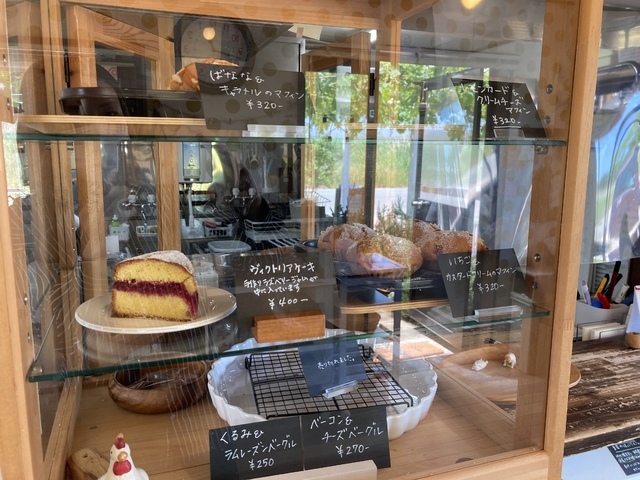 ばなな&
キャラメルのマフィン
¥320-
クリームチーズ
マフィン
¥320-
ヴィクトリアケーキ
手作りラズベリージャムが
中に入っています
¥400-
いちご&
カスタードクリームのマフィン
¥320-
売り切れました。
くるみ&
ラムレーズンベーグル
¥250
ベーコン&
チーズベーグル
¥270-